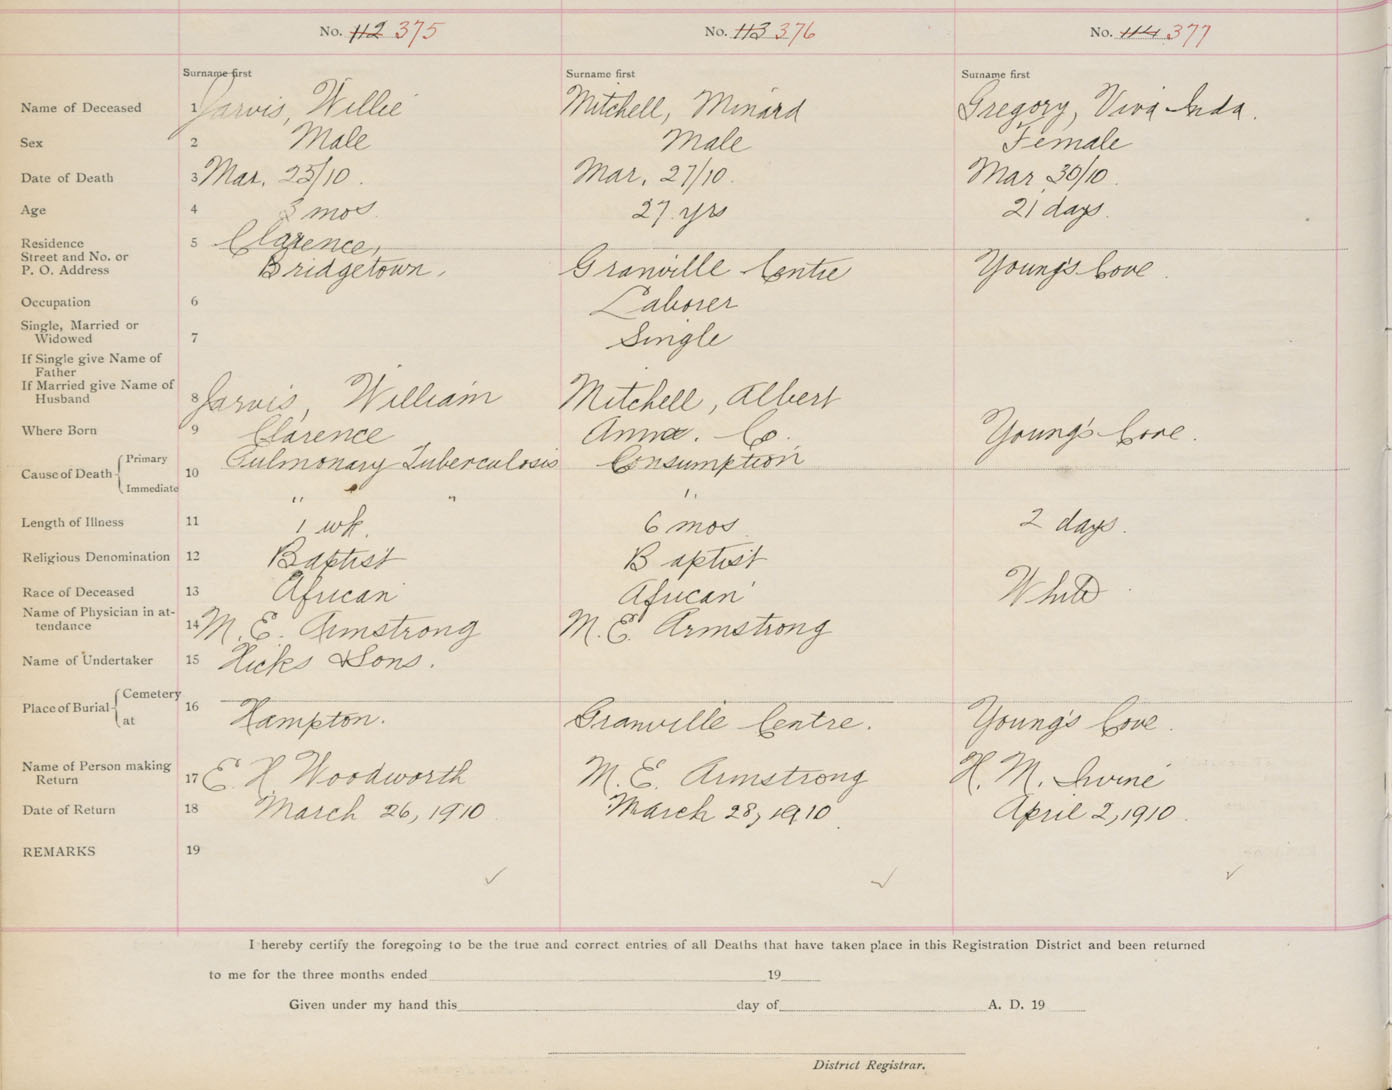 No. 112 375 No. 113 376 No. 114 377
Surname first Surname first Surname first
Name of Deceased 1 Jarvis, Willie Mitchell, Minard Gregory, Viva Inda.
Sex 2 Male Male Female
Date of Death 3 Mar. 25/10. Mar. 27/10. Mar 30/10.
Age 4 3 mos. 27 yrs 21 days.
Residence 5 Clarence,
Street and No. or
P. O. Address Bridgetown. Granville Centre Young's Cove.
Occupation 6 Laborer
Single, Married or
Widowed 7 Single
If Single give Name of
Father
If Married give Name of
Husband 8 Jarvis, William Mitchell, Albert
Where Born 9 Clarence Anna. Co. Young's Cove.
Cause of Death Primary 10 Pulmonary Tuberculosis Consumption
Immediate " " "
Length of Illness 11 1 wk. 6 mos 2 days.
Religious Denomination 12 Baptist Baptist
Race of Deceased 13 African African White
Name of Physician in at-
tendance 14 M. E. Armstrong M. E. Armstrong
Name of Undertaker 15 Hicks & Sons.
Place of Burial Cemetery 16
at Hampton. Granville Centre. Young's Cove.
Name of Person making
Return 17 E. H. Woodworth M. E. Armstrong H. M. Irvine
Date of Return 18 March 26, 1910 March 28, 1910 April 2, 1910
REMARKS 19
I hereby certify the foregoing to be the true and correct entries of all Deaths that have taken place in this Registration District and been returned
to me for the three months ended 19
Given under my hand this day of A. D. 19
District Registrar.